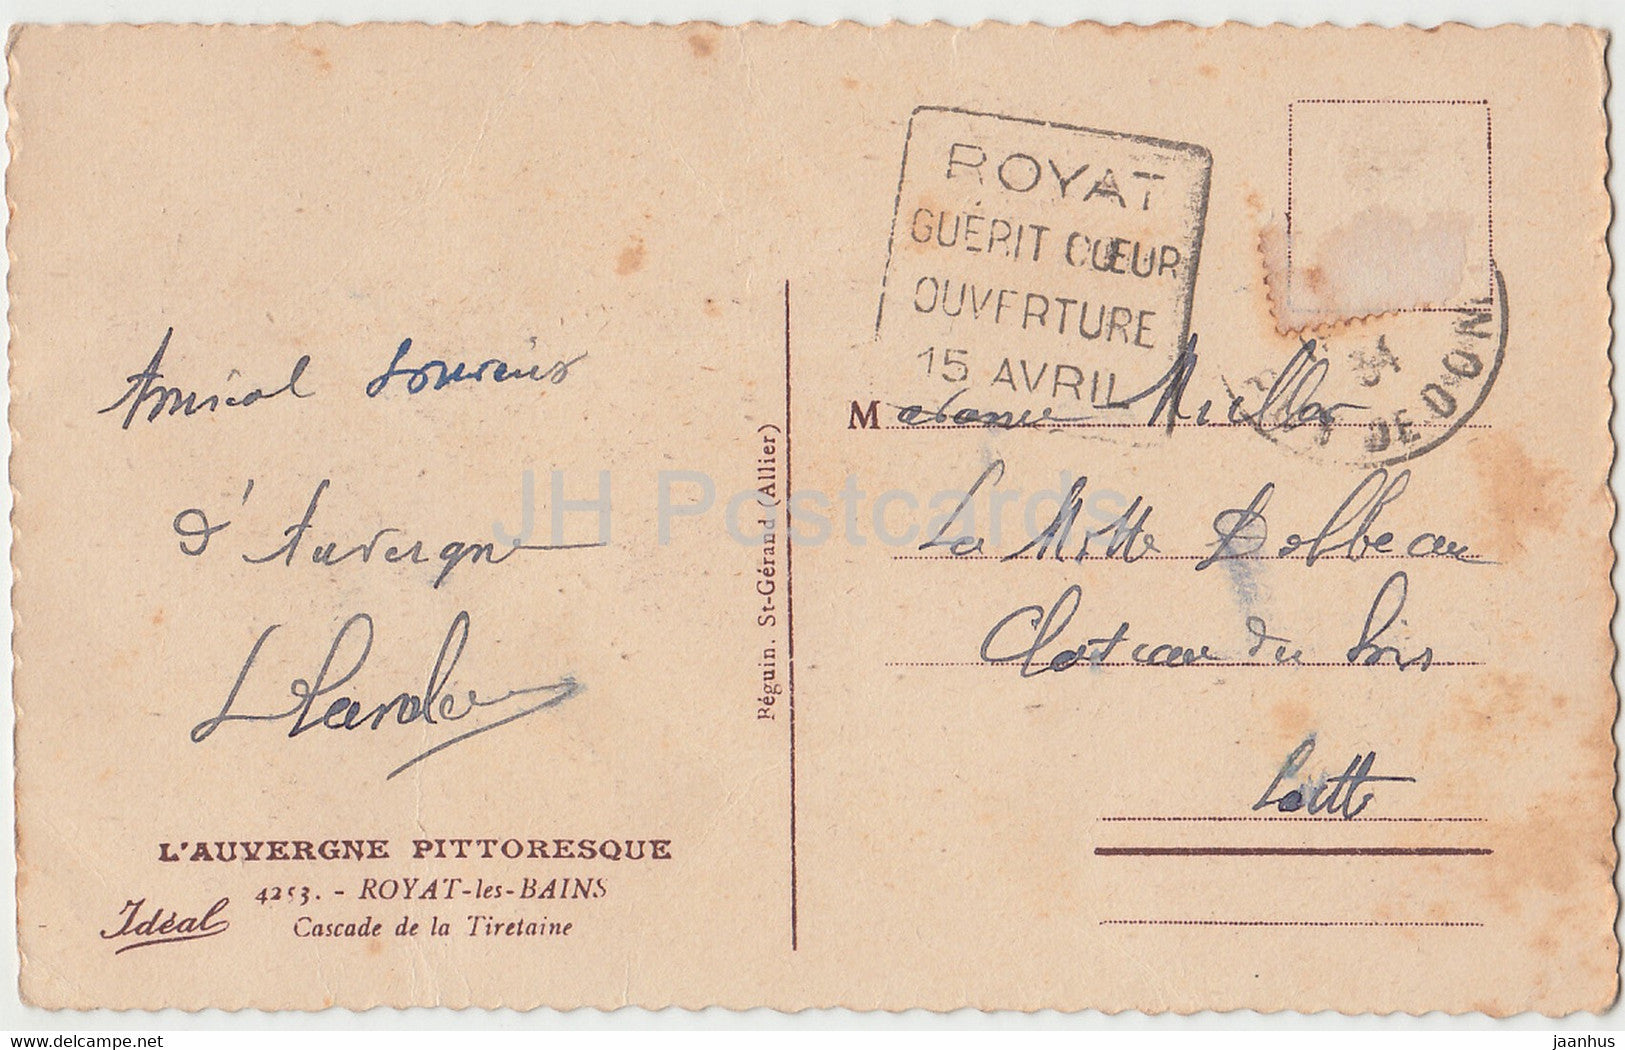 ROYAT
GUÉRIT CŒUR
OUVERTURE
15 AVRIL
DE DÔME
Amical Souvenir
d'Auvergne
Madame Muller
La Motte Bolbeau
Chateau du Bois
Réguin. St-Gérand (Allier)
L'AUVERGNE PITTORESQUE
4253. - ROYAT-les-BAINS
Idéal
Cascade de la Tiretaine
JH Postcards
delcampe.net
jaanhus